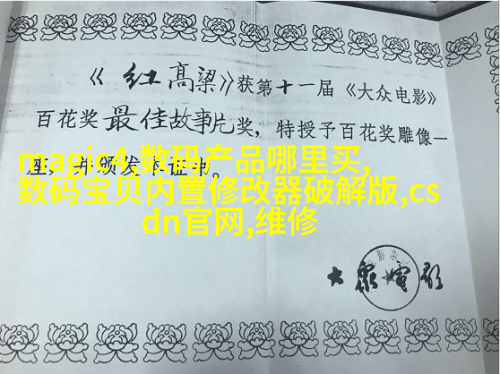 《红高粱》获第十一届《大众电影》
百花奖最佳故事片奖，特授予百花奖雕像一
座，并颁发本证书。
magic4,数码产品哪里买,
数码宝贝内置修改器破解版,cs
dn官网,维修
大众电影